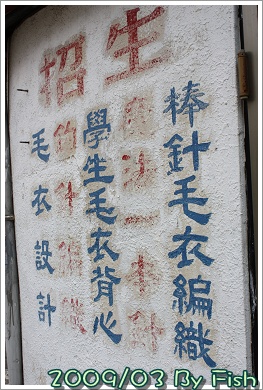 招生
棒針毛衣編織
學生毛衣背心
鉤針編織
毛衣設計
2009/03 By Fish